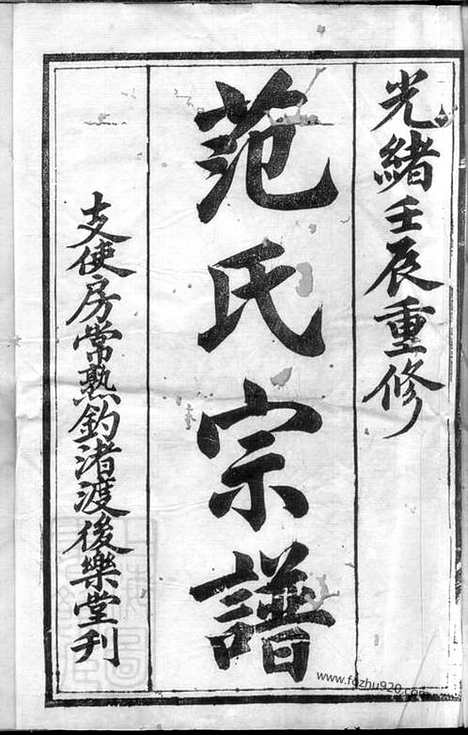 光緒壬辰重修
范氏宗譜
支使房常熟釣渚渡後樂堂刊
www.fqzhu920.com